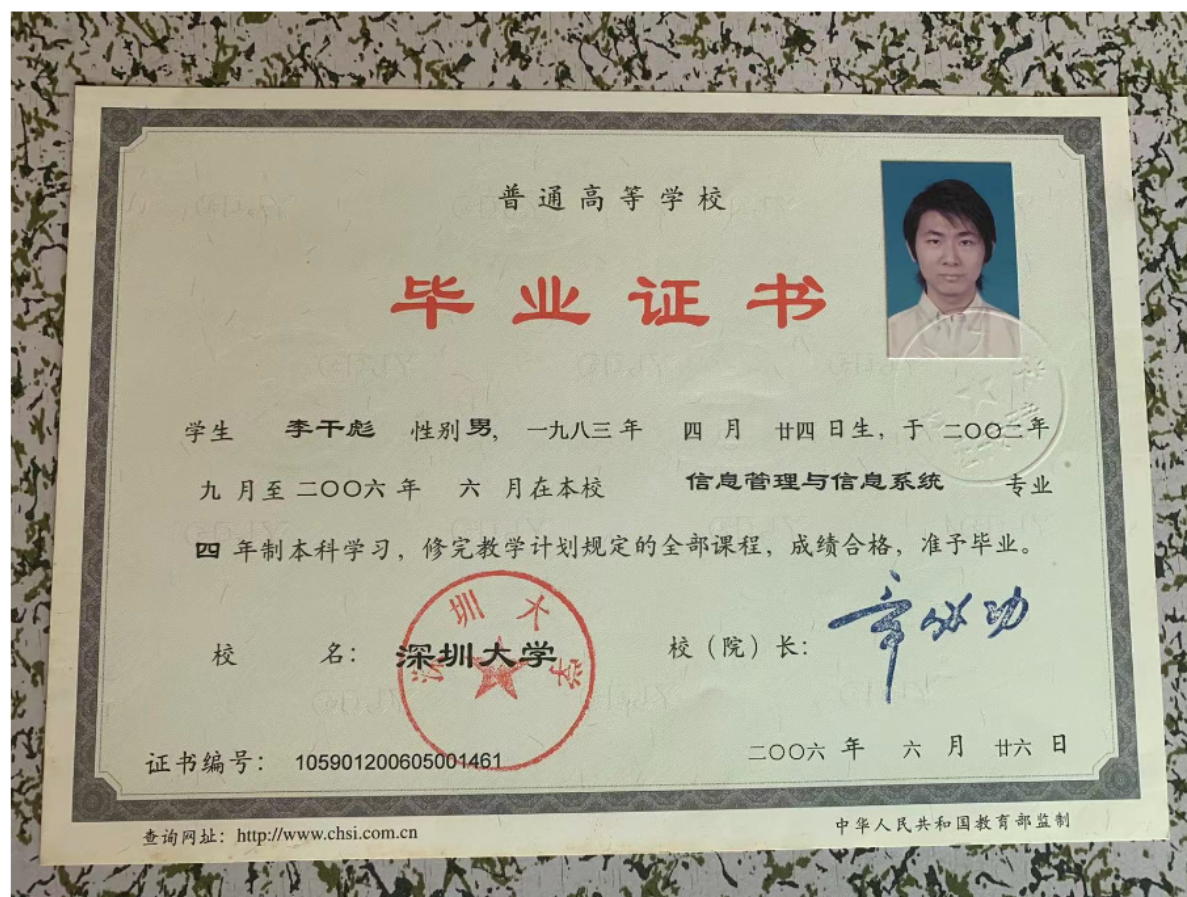 普通高等学校
毕业证书
学生 李干彪 性别 男, 一九八三年 四月 廿四日生, 于 二〇〇二年
九月至二〇〇六年 六月在本校 信息管理与信息系统 专业
四年制本科学习, 修完教学计划规定的全部课程, 成绩合格, 准予毕业。
校 名: 深圳大学 校（院）长: 章必功
深圳大学
证书编号: 105901200605001461 二〇〇六年 六月 廿六日
查询网址: http://www.chsi.com.cn 中华人民共和国教育部监制